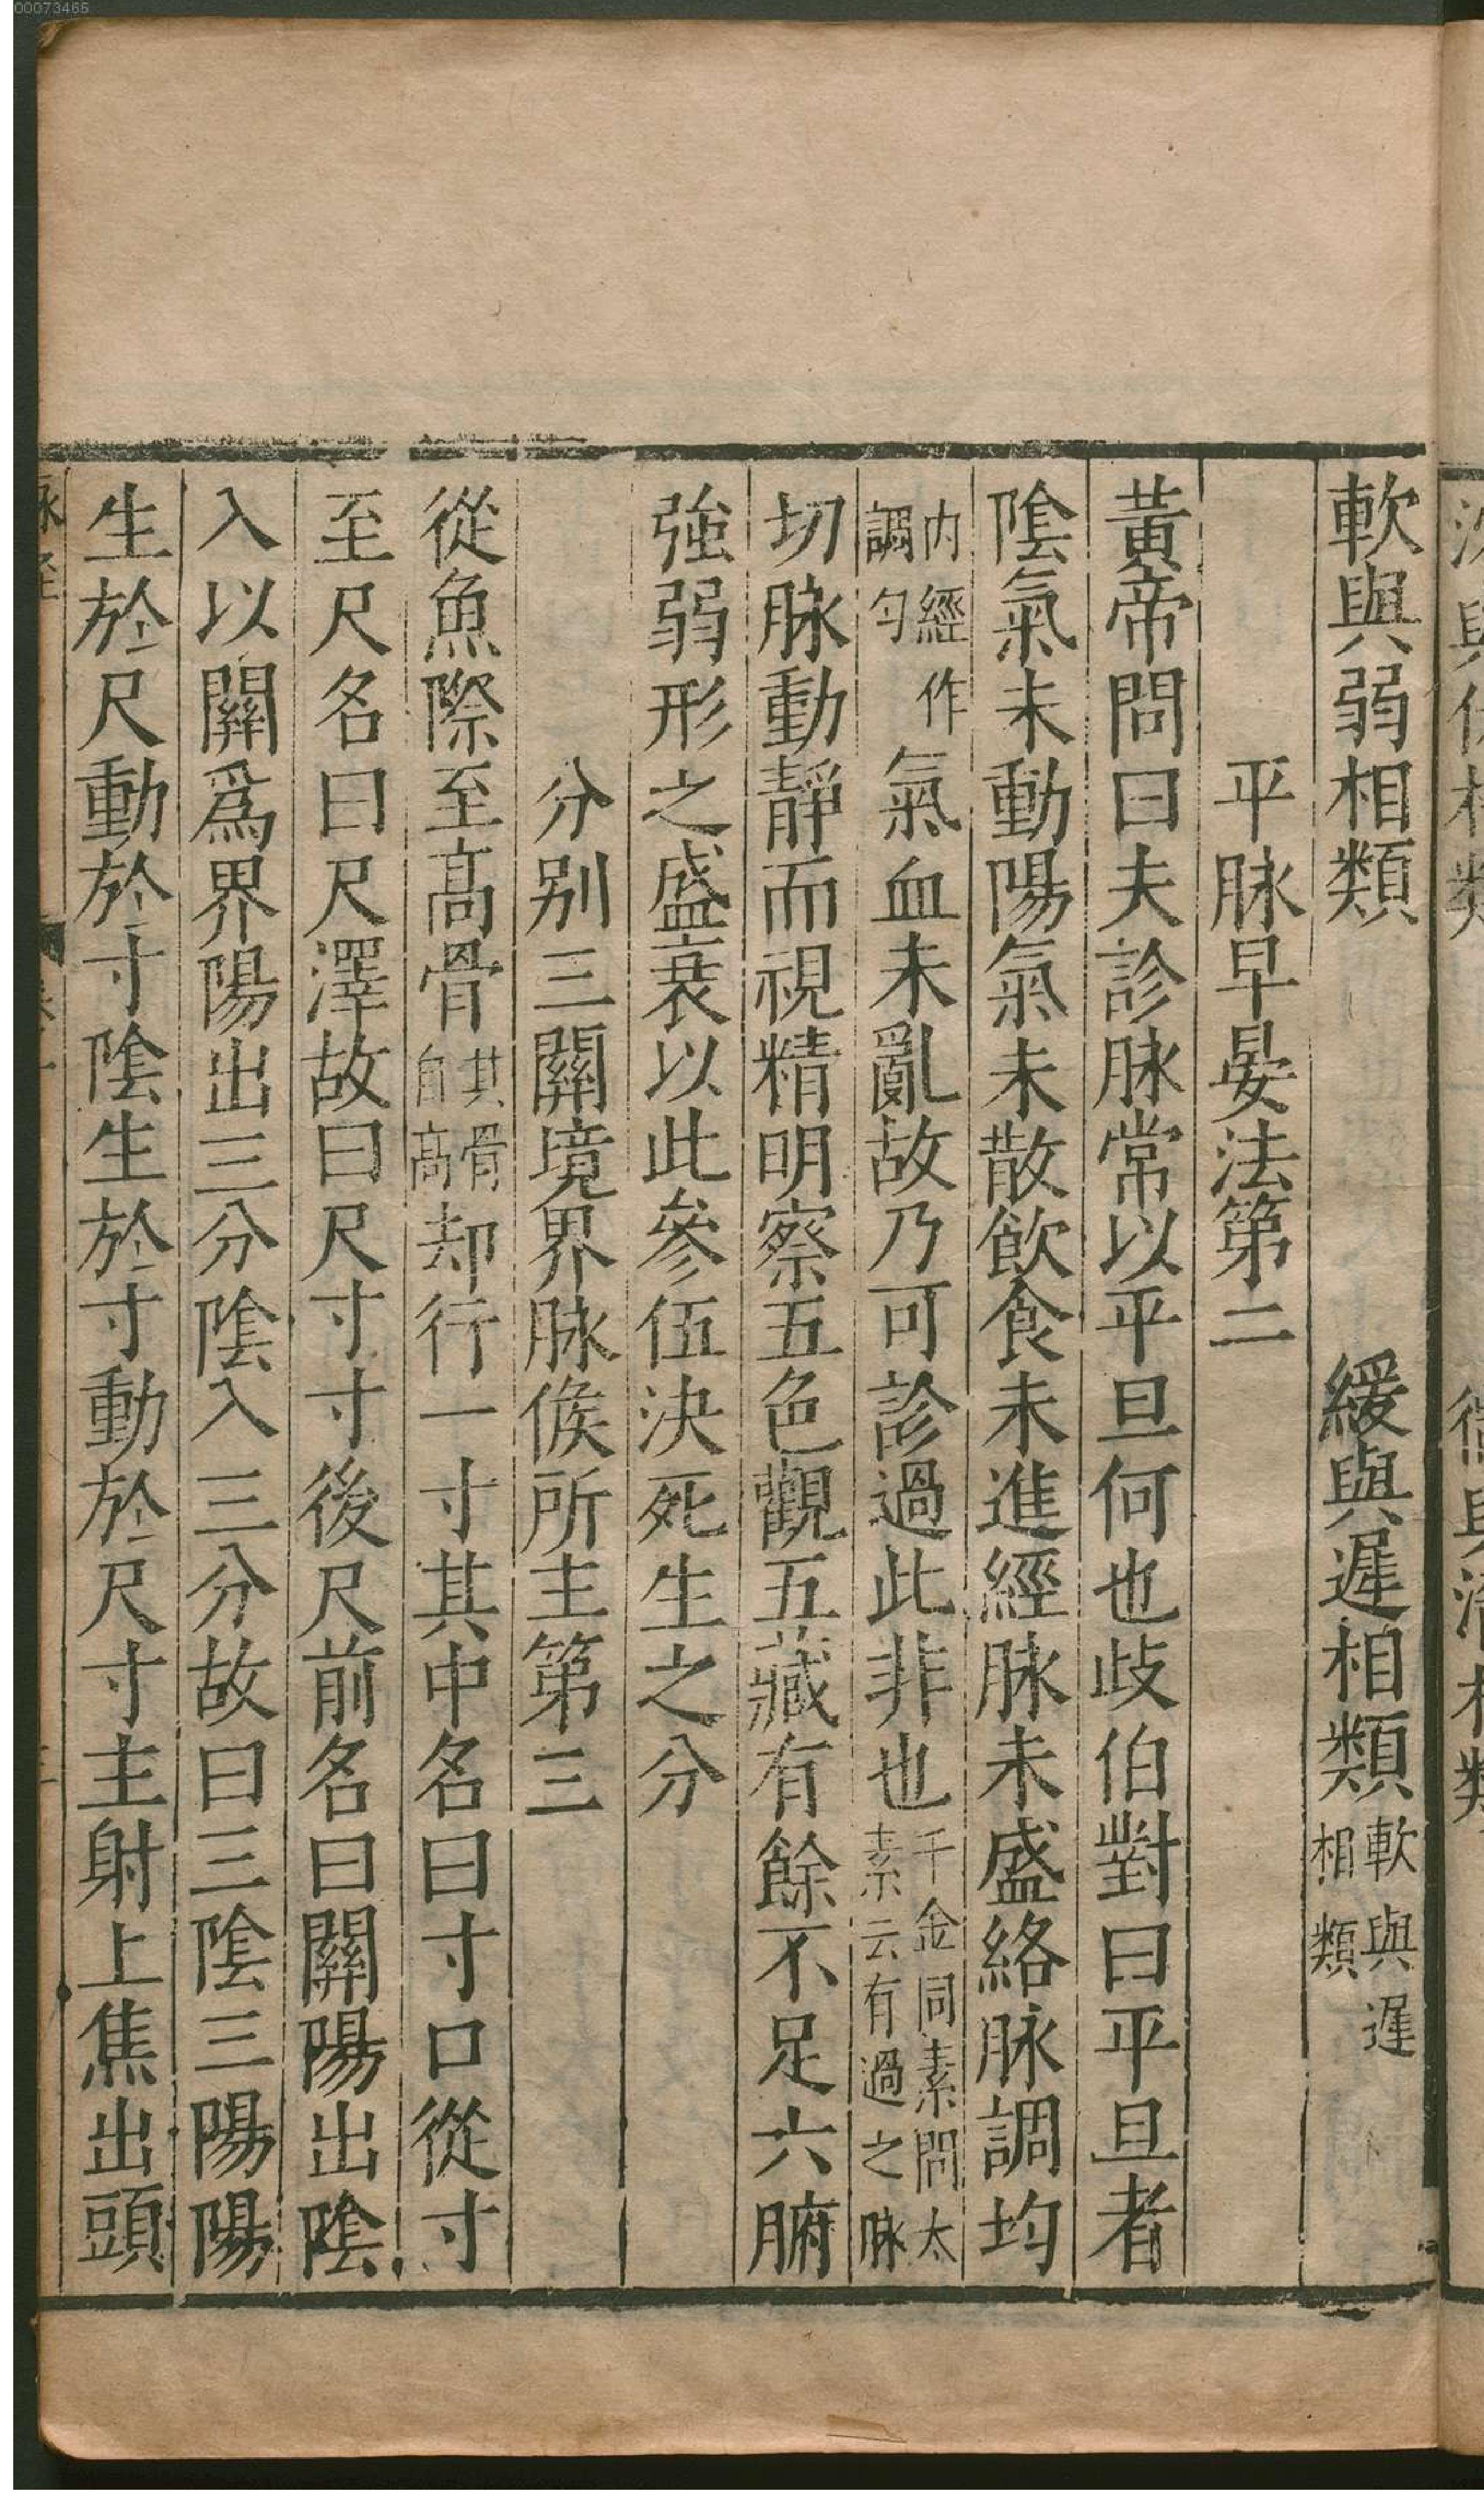 00073465
軟與弱相類　緩與遲相類軟與遲相類
平脉早晏法第二
黃帝問曰夫診脉常以平旦何也歧伯對曰平旦者
陰氣未動陽氣未散飲食未進經脉未盛絡脉調均
内經作調勻氣血未亂故乃可診過此非也千金同素問太素云有過之脉
切脉動靜而視精明察五色觀五藏有餘不足六腑
強弱形之盛衰以此參伍決死生之分
分別三關境界脉候所主第三
從魚際至高骨其骨自高却行一寸其中名曰寸口從寸
至尺名曰尺澤故曰尺寸寸後尺前名曰關陽出陰
入以關爲界陽出三分陰入三分故曰三陰三陽陽
生於尺動於寸陰生於寸動於尺寸主射上焦出頭